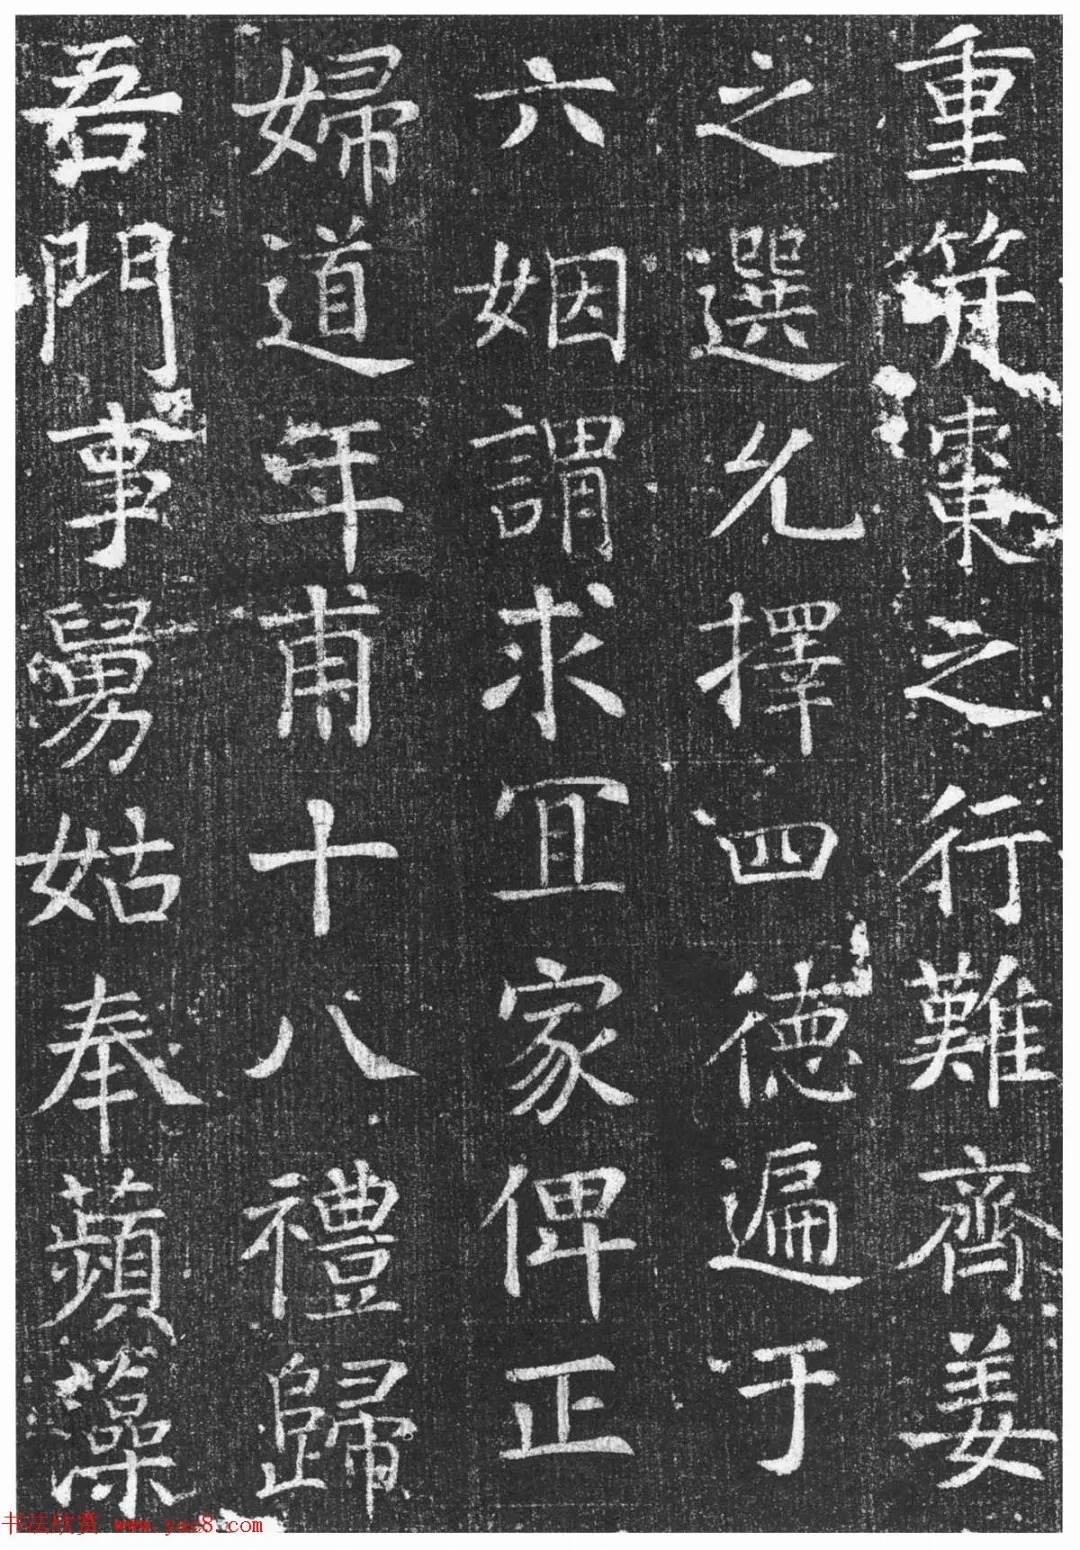 重笄棗之行難齊姜
之選允擇四德遍于
六姻謂求冝家俾正
婦道年甫十八禮歸
吾門事舅姑奉蘋藻
书法欣赏 www.yac8.com